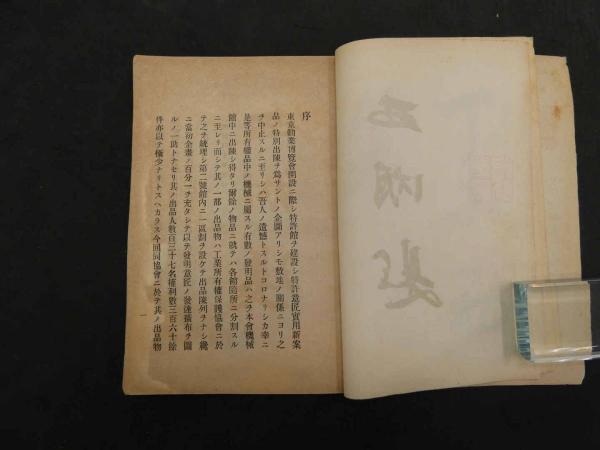 序
東京勸業博覽會開設ニ際シ特許館ヲ建設シ特許意匠實用新案
品ノ特別出陳ヲ爲サントノ企圖アリシモ敷地ノ關係ニヨリ之
ヲ中止スルニ至リシハ吾人ノ遺憾トスルトコロナリシカ幸ニ
是等所有權品中ノ機械ニ屬スル有數ノ發明品ハ之ヲ本會機械
館中ニ出陳シ得タリ爾餘ノ物品ニ就テハ各館随所ニ分割スル
ニ至レリ而シテ其ノ一部ノ出品物ハ工業所有權保護協會ニ於
テ之ヲ統理シ第二號館內ニ一區劃ヲ設ケテ出品陳列ヲナシ纔
ニ當初企畫ノ百分一ヲ充タシテ以テ發明意匠ノ發達擴布ヲ圖
ルノ一助トナセリ其ノ出品人數百三十七名權利數三百六十餘
件亦以テ極少ナリトスヘカラス今回同協會ニ於テ其ノ出品物
一